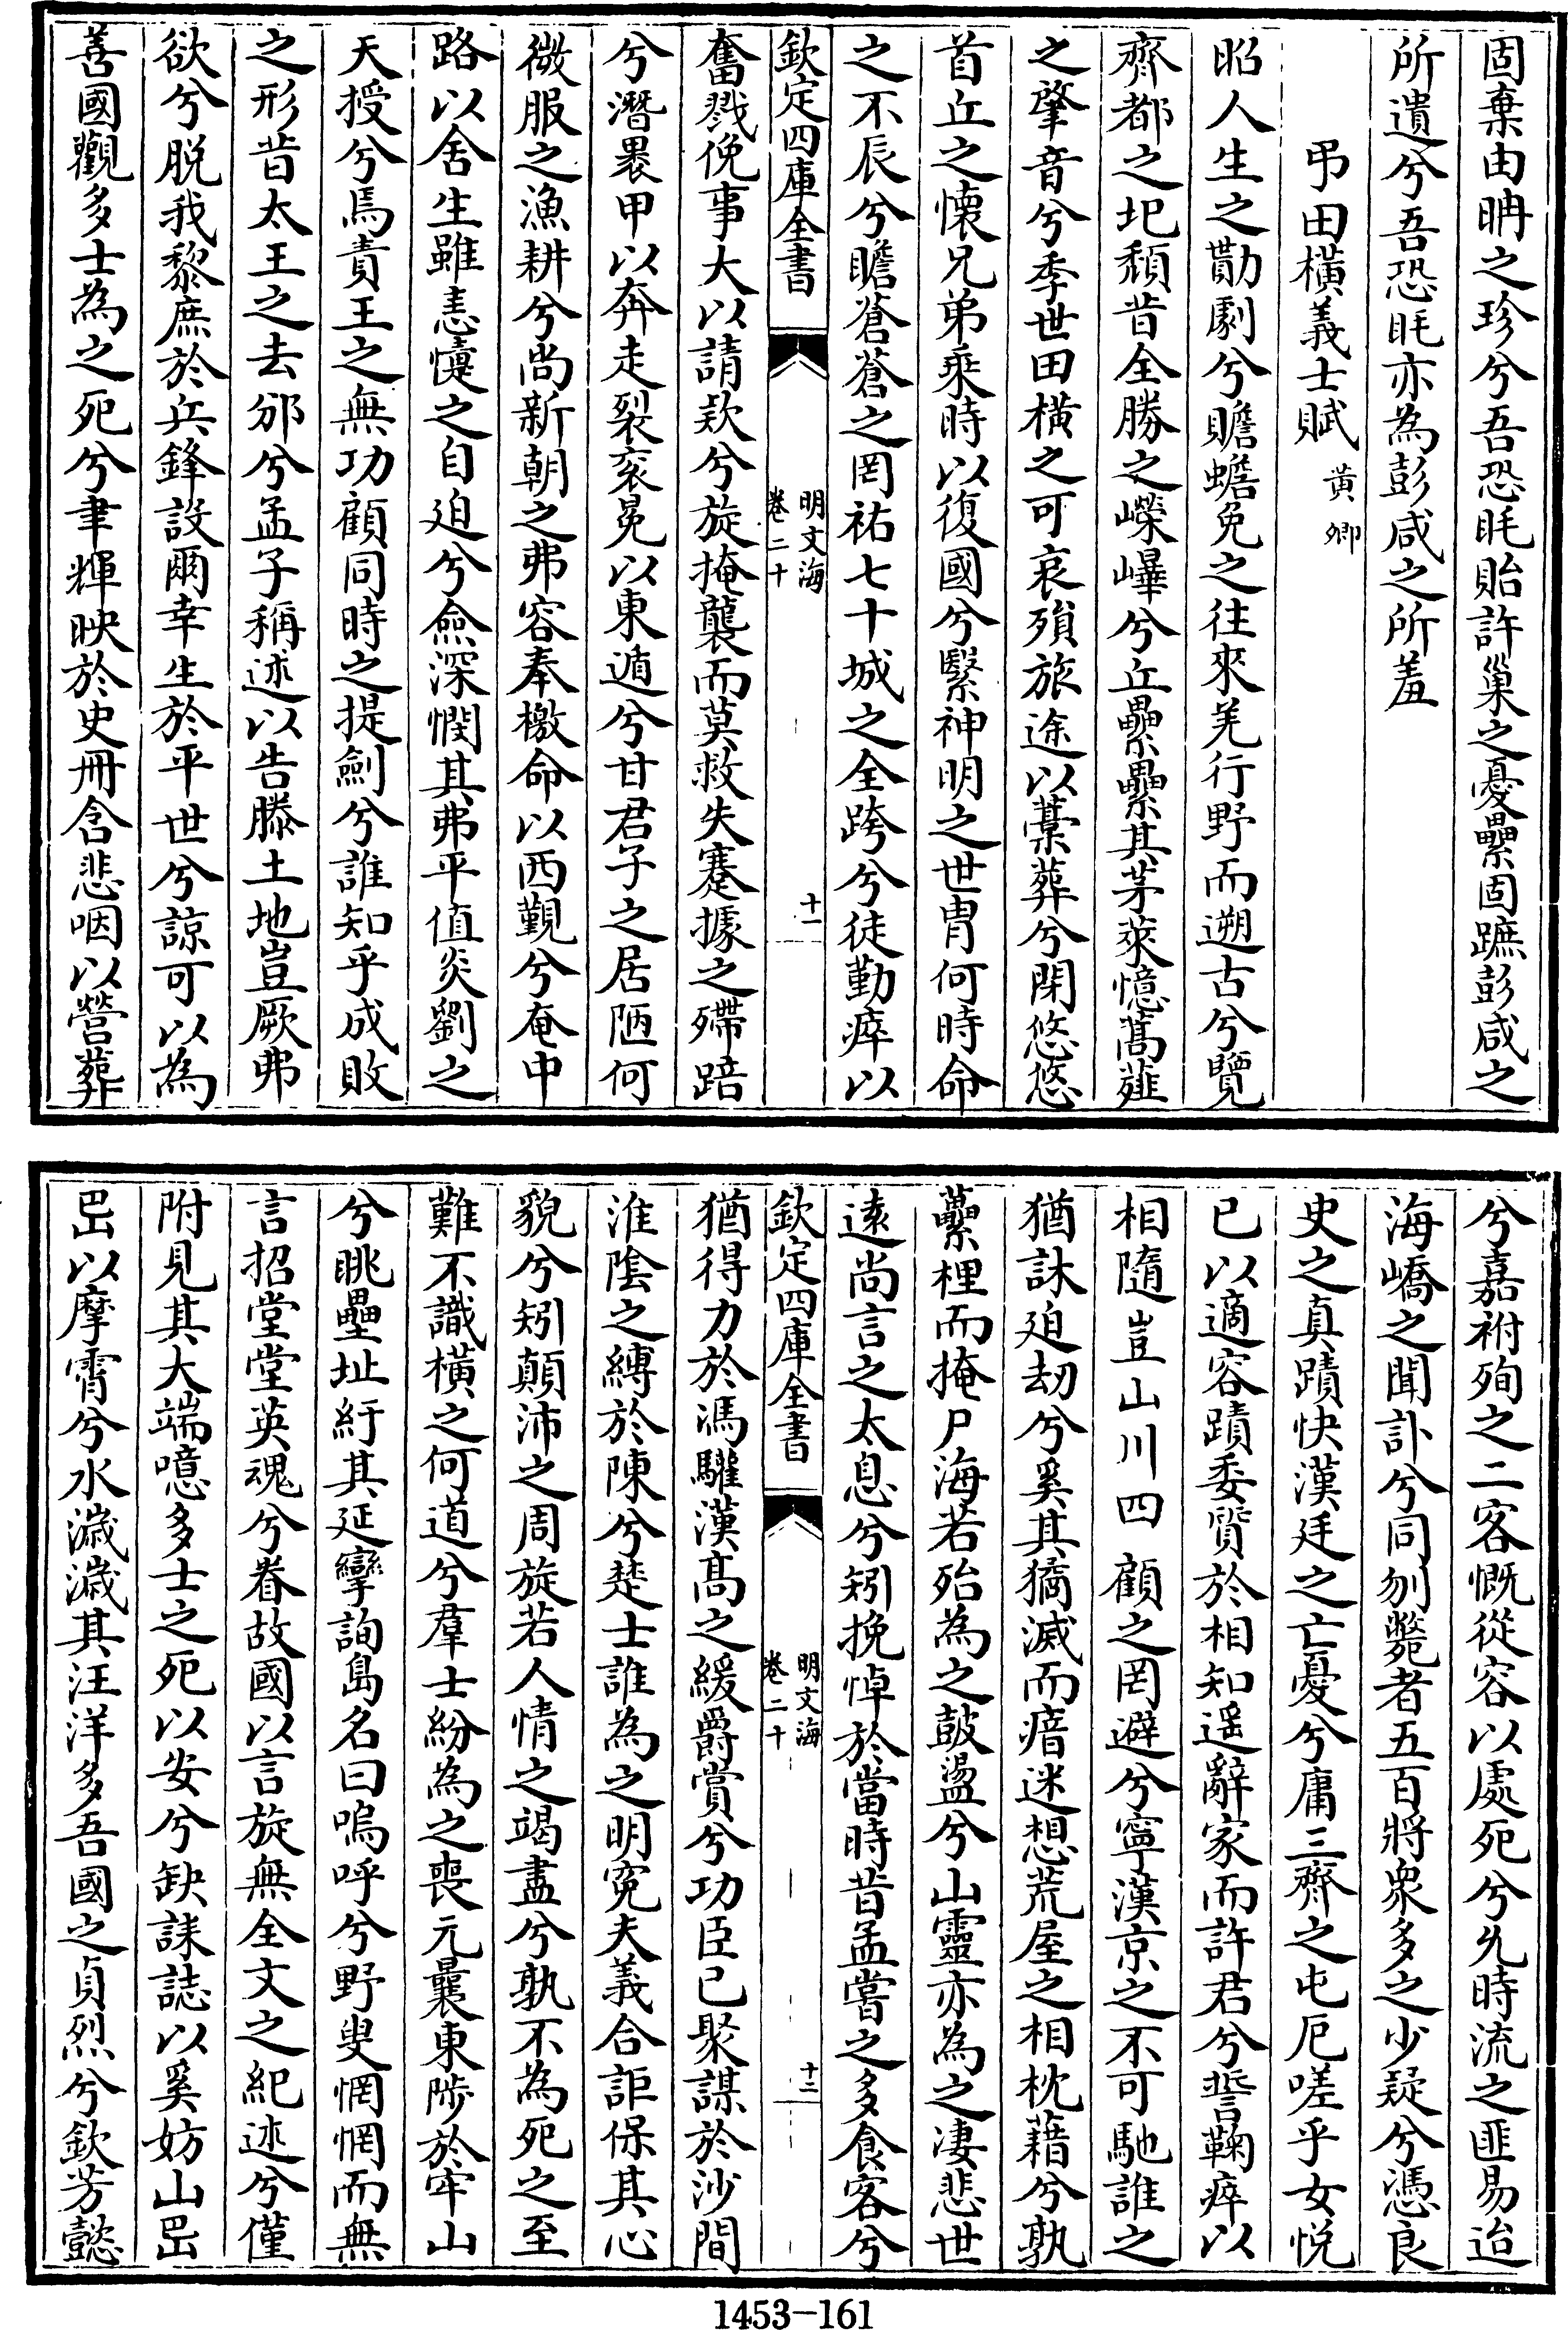 固棄由冉之珍兮吾恐眊貽許巢之憂纍固蹠彭咸之
所遺兮吾恐眊亦為彭咸之所羞
弔田橫義士賦 黄卿
昭人生之勩劇兮贍蟾兔之往來羌行野而遡古兮覽
齊都之圯頽昔全勝之嶸嶫兮丘纍纍其茅萊憶蒿薤
之肇音兮季世田橫之可哀殞旅途以藁葬兮閉悠悠
首丘之懐兄弟乘時以復國兮繄神明之世胄何時命
之不辰兮瞻蒼蒼之罔祐七十城之全跨兮徒勤瘁以
欽定四庫全書 明文海 卷二十 十一
奮戮俛事大以請欵兮旋掩襲而莫救失蹇據之殢踣
兮潛褁甲以奔走裂衮冕以東遁兮甘君子之居陋何
微服之漁耕兮尚新朝之弗容奉檄命以西覲兮奄中
路以舍生雖恚懥之自廹兮僉深憫其弗平值炎劉之
天授兮焉責王之無功顧同時之提劍兮誰知乎成敗
之形昔太王之去邠兮孟子稱述以告滕土地豈厥弗
欲兮脱我黎庶於兵鋒設爾幸生於平世兮諒可以為
善國觀多士為之死兮聿輝映於史冊含悲咽以營葬
兮嘉祔殉之二客慨從容以處死兮允時流之匪易迨
海嶠之聞訃兮同刎斃者五百將衆多之少疑兮憑良
史之真蹟快漢廷之亡憂兮庸三齊之屯厄嗟乎女悦
已以適容蹟委質於相知遥辭家而許君兮誓鞠瘁以
相隨豈山川四顧之罔避兮寧漢京之不可馳誰之
猶訹廹刼兮奚其獝滅而瘖迷想荒屋之相枕藉兮孰
虆梩而掩尸海若殆為之鼓盪兮山靈亦為之凄悲世
逺尚言之太息兮矧挽悼於當時昔孟嘗之多食客兮
欽定四庫全書 明文海 卷二十 十二
猶得力於馮驩漢高之緩爵賞兮功臣已聚謀於沙間
淮陰之縛於陳兮楚士誰為之明寃夫義合詎保其心
貌兮矧顛沛之周旋若人情之竭盡兮孰不為死之至
難不識橫之何道兮羣士紛為之喪元曩東陟於牢山
兮眺壘址紆其延攣詢島名曰嗚呼兮野叟惘惘而無
言招堂堂英魂兮眷故國以言旋無全文之紀述兮僅
附見其大端噫多士之死以安兮缺誄誌以奚妨山嵒
嵒以摩霄兮水濊濊其汪洋多吾國之貞烈兮欽芳懿
1453-161